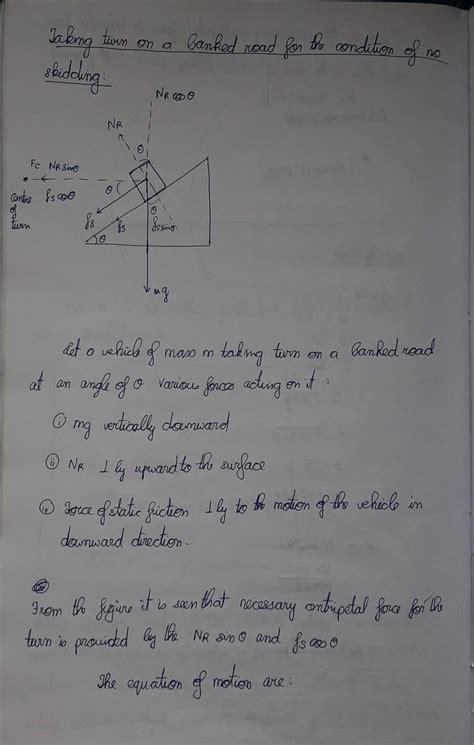 Taking turn on a banked road for the condition of no
skidding:
NR cosθ
NR
θ
Fc NR sinθ
θ
Centre
of
turn
fs cosθ
fs
fs
θ
fs sinθ
θ
mg
Let a vehicle of mass m taking turn on a banked road
at an angle of θ. Various forces acting on it :
(i) mg vertically downward
(ii) NR ⊥ly upward to the surface
(iii) Force of static friction ⊥ly to the motion of the vehicle in
downward direction.
From the figure it is seen that necessary centripetal force for the
turn is provided by the NR sinθ and fs cosθ.
The equation of motion are: